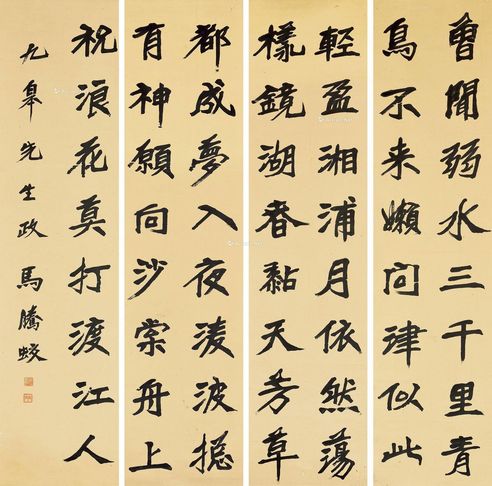 曾聞弱水三千里青
鳥不来嬾問津似此
輕盈湘浦月依然蕩
樣鏡湖春黏天芳草
都成夢入夜淩波總
有神願向沙棠舟上
祝浪花莫打渡江人
九皋先生政 馬騰蛟